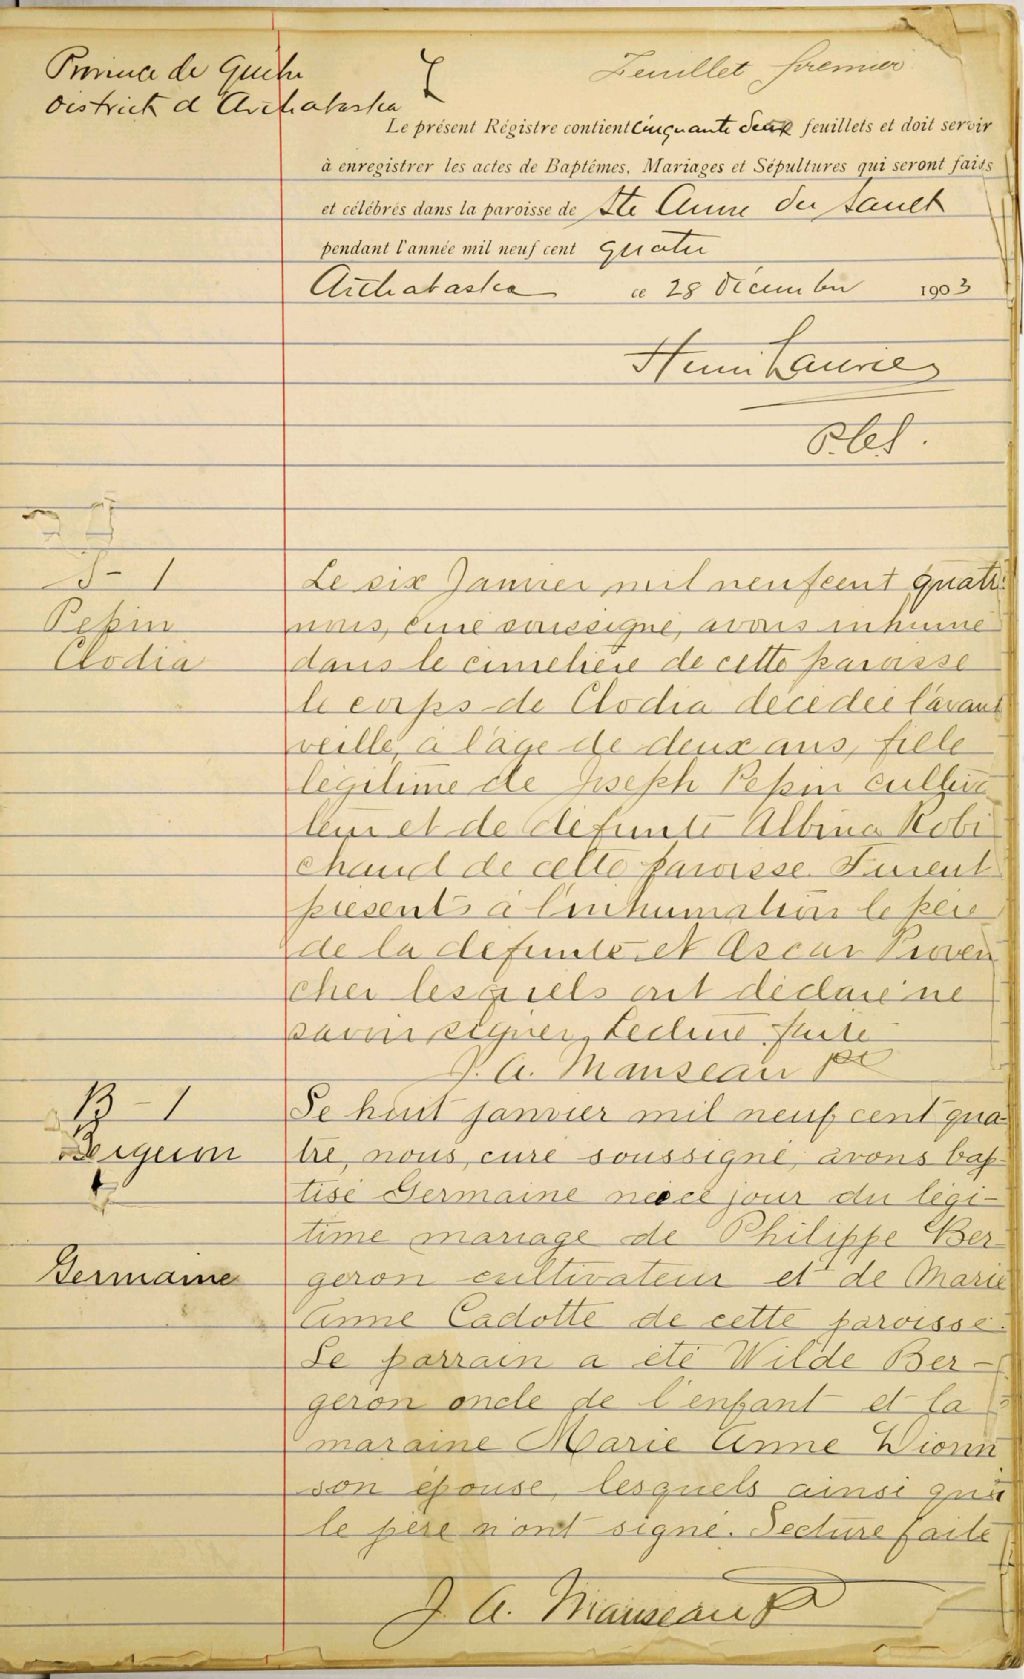 Province de Québec
District d'Arthabaska
Feuillet premier
Le présent Régistre contient cinquante deux feuillets et doit servir
à enregistrer les actes de Baptêmes, Mariages et Sépultures qui seront faits
et célébrés dans la paroisse de Ste Anne du Sault
pendant l'année mil neuf cent quatre
Arthabaska ce 28 Décembre 1903
Henri Laurier
P.C.S.
S - 1
Pepin
Clodia
Le six Janvier mil neufcent quatre
nous, curé soussigné, avons inhumé
dans le cimetière de cette paroisse
le corps de Clodia décédée l'avant
veille, à l'âge de deux ans, fille
légitime de Joseph Pepin cultiva
teur et de défunte Albina Robi
chaud de cette paroisse. Furent
présents à l'inhumation le père
de la défunte et Oscar Proven
cher lesquels ont déclaré ne
savoir signer, Lecture faite
J. A. Manseau Ptre
B - 1
Bergeron
Germaine
Le huit janvier mil neuf cent qua-
tre, nous, curé soussigné, avons bap-
tisé Germaine née ce jour du légi-
time mariage de Philippe Ber-
geron cultivateur et de Marie
Anne Cadotte de cette paroisse.
Le parrain a été Wilde Ber-
geron oncle de l'enfant et la
maraine Marie Anne Dionn
son épouse, lesquels ainsi que
le père n'ont signé. Lecture faite
J. A. Manseau Ptre